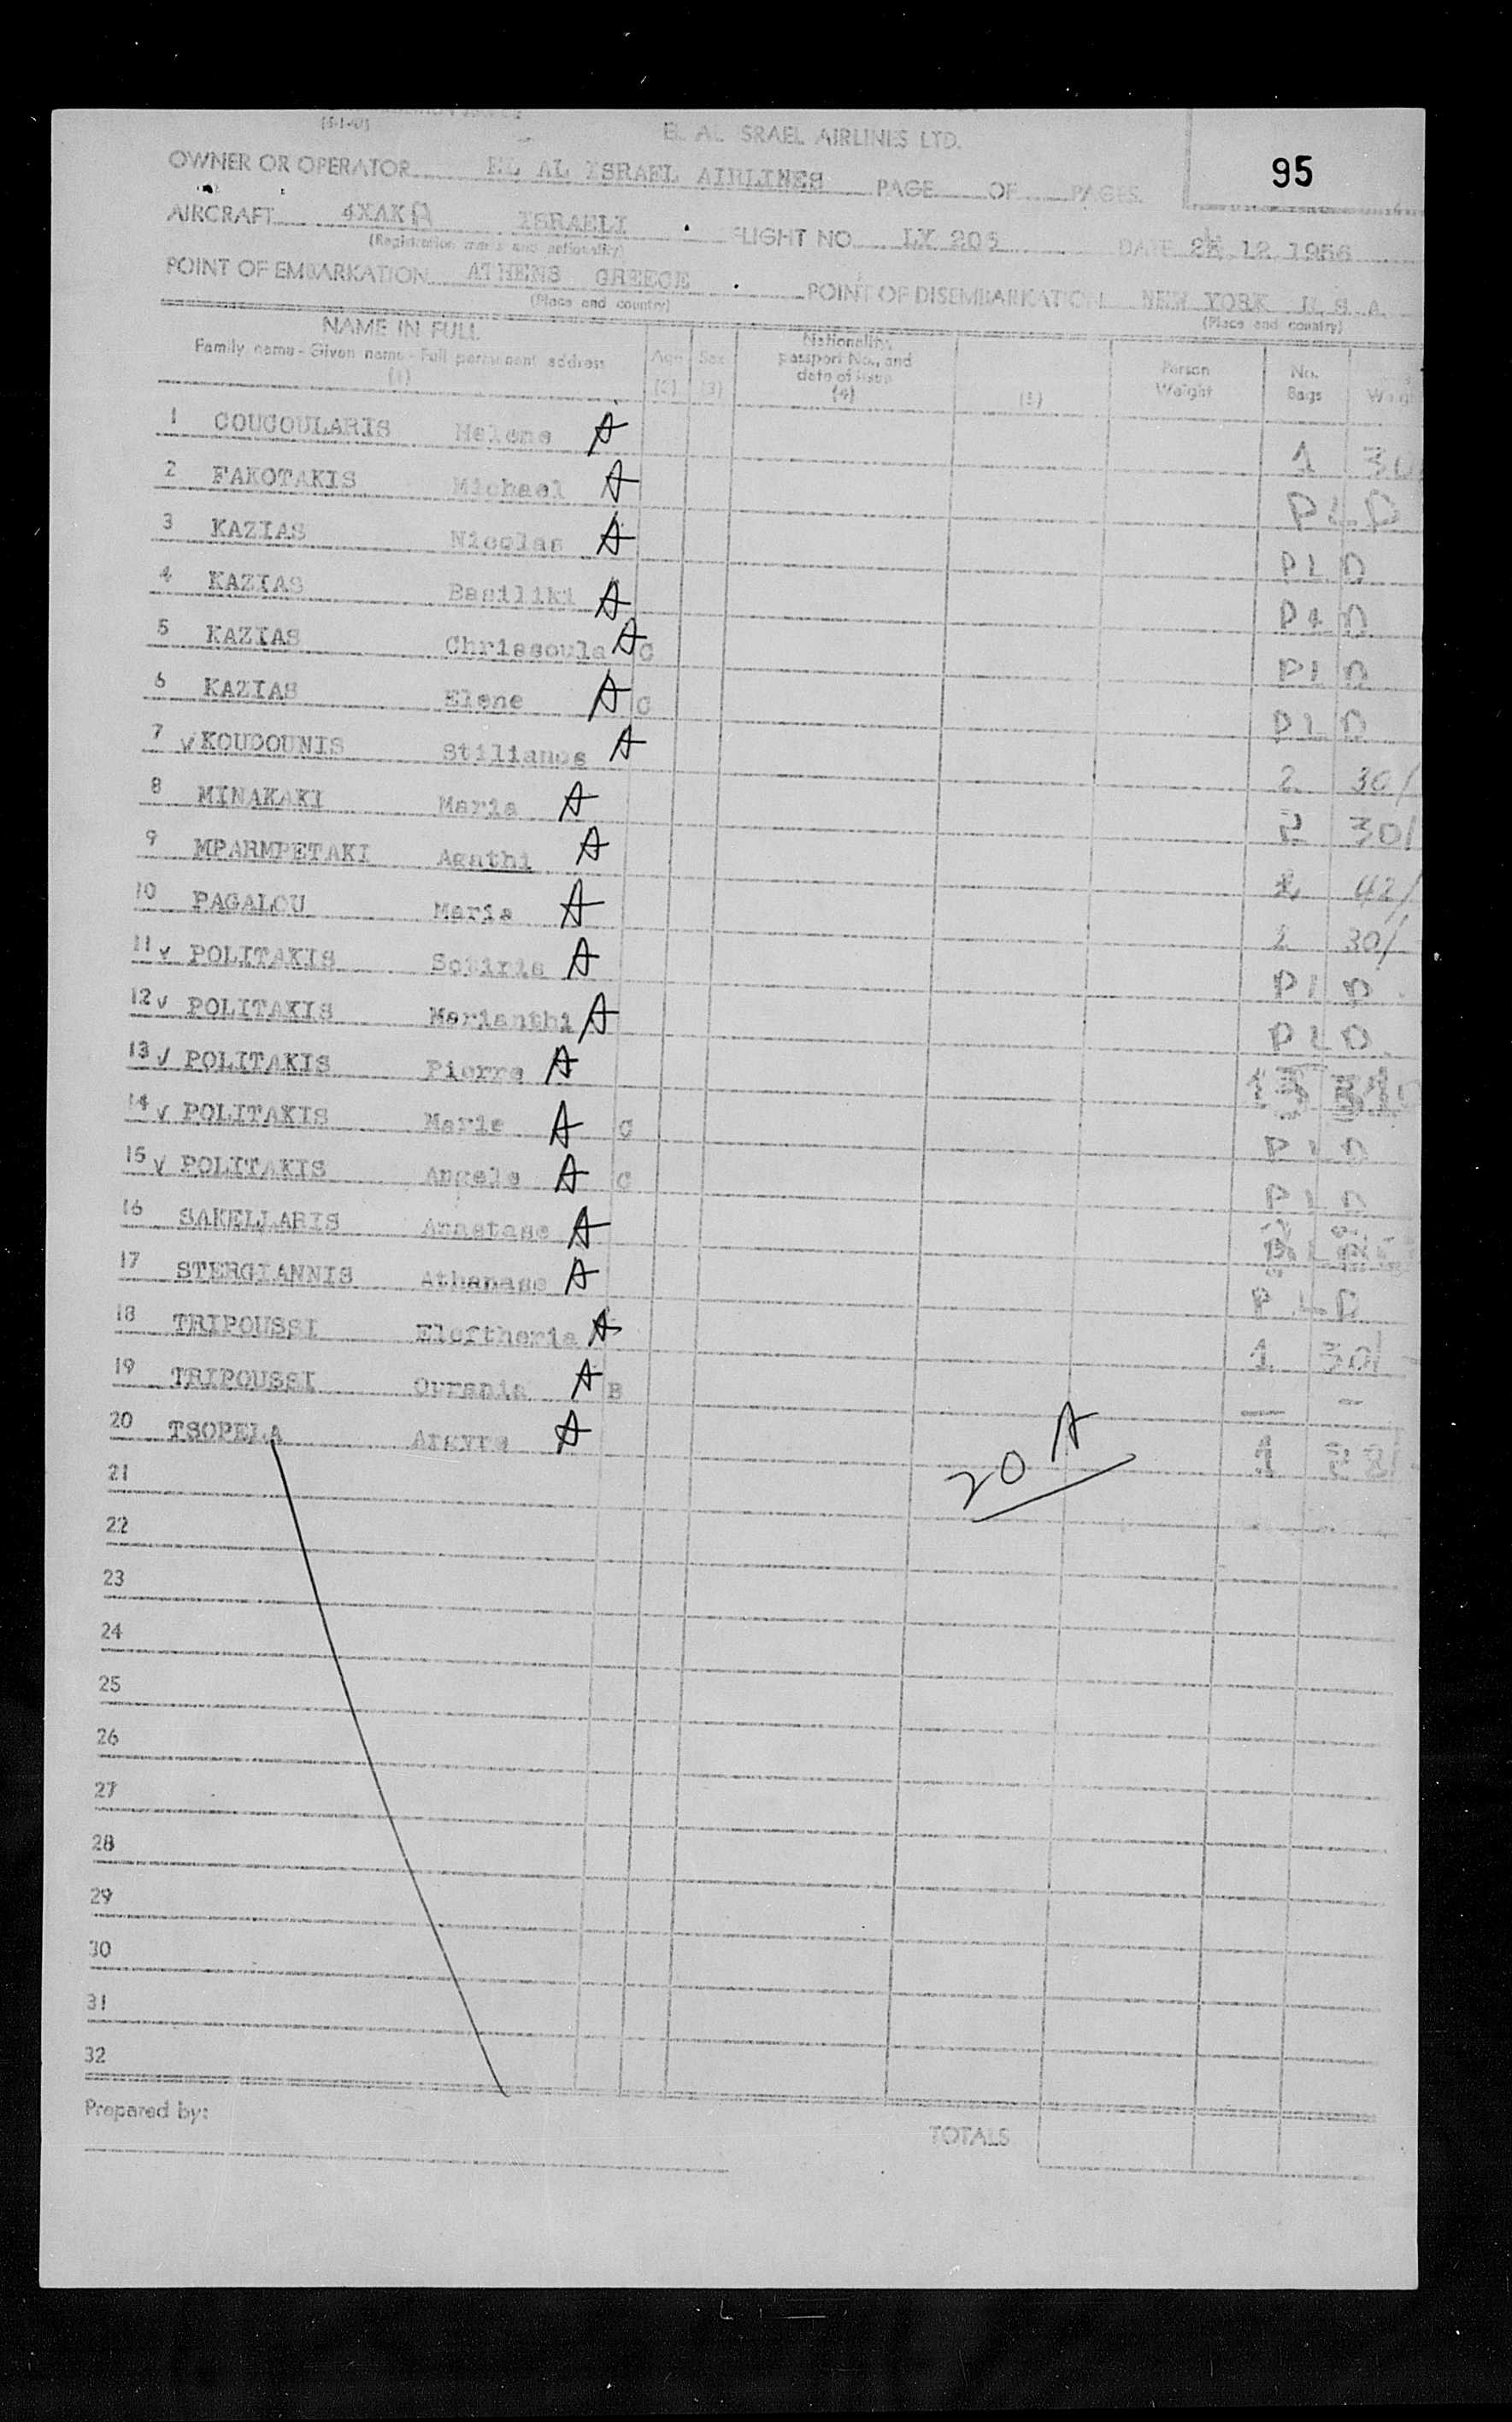 (5-1-49)
EL AL ISRAEL AIRLINES LTD.
95
OWNER OR OPERATOR EL AL ISRAEL AIRLINES PAGE OF PAGES
AIRCRAFT 4XAKA ISRAELI FLIGHT NO. LY 205 DATE 12.1956
(Registration marks and nationality)
POINT OF EMBARKATION ATHENS GREECE POINT OF DISEMBARKATION NEW YORK U.S.A.
(Place and country) (Place and country)
NAME IN FULL
Family name - Given name - Full permanent address
(1) Age (2) Sex (3) Nationality, passport No., and date of issue (4) (5) Person Weight No. Bags
1 COUCOULARIS Helene A 1 30
2 FAKOTAKIS Michael A PLD
3 KAZIAS Nicolas A PLD
4 KAZIAS Basiliki A PLD
5 KAZIAS Chrissoula A C PLD
6 KAZIAS Elene A C PLD
7 ✓ KOUDOUNIS Stilianos A 2 30/
8 MINAKAKI Maria A 2 30/
9 MPARMPETAKI Agathi A 42/
10 PAGALOU Maria A 2 30/
11 ✓ POLITAKIS Sotiris A PLD
12 ✓ POLITAKIS Marianthi A PLD
13 ✓ POLITAKIS Pierre A
14 ✓ POLITAKIS Marie A C PLD
15 ✓ POLITAKIS Angele A C PLD
16 SAKELLARIS Anastase A
17 STERGIANNIS Athanase A PLD
18 TRIPOUSSI Eleftheria A 1 30/
19 TRIPOUSSI Ourania A B — –
20 TSOPELA Argyre A 1 28/
20 A
21
22
23
24
25
26
27
28
29
30
31
32
Prepared by:
TOTALS